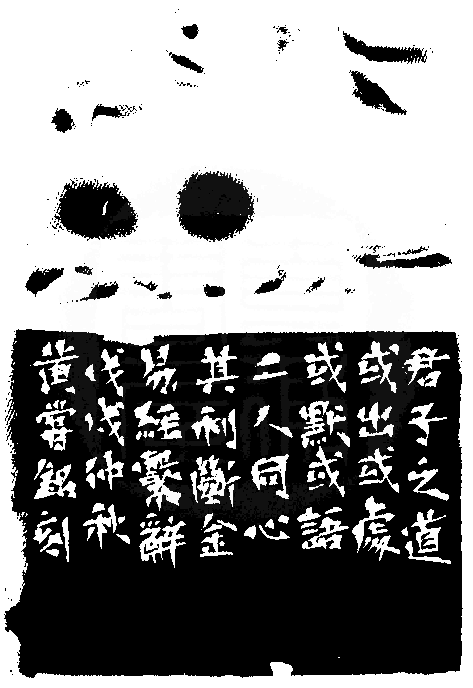 君子之道
或出或處
或默或語
二人同心
其利斷金
易經繫辭
戊戌仲秋
黄嘗銘刻